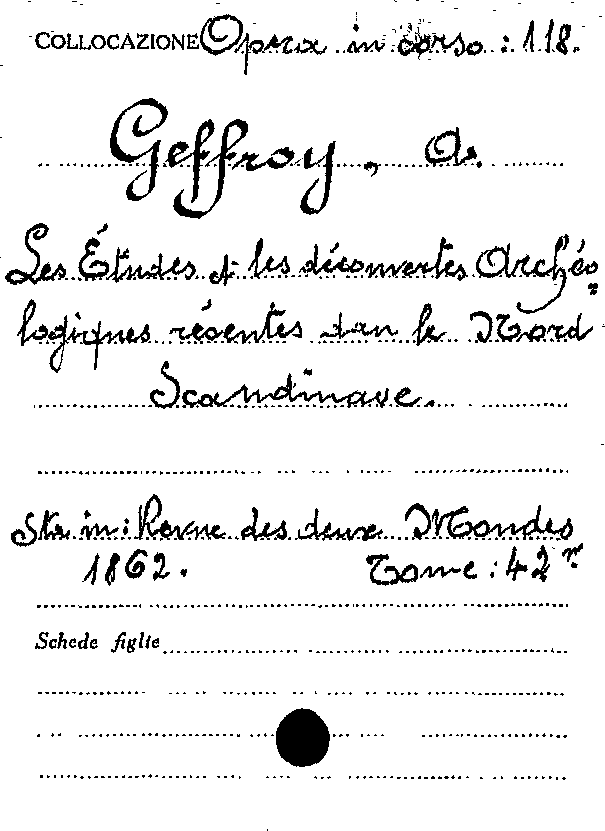 COLLOCAZIONE Opera in corso : 118.
Geffroy, A.
Les Études et les découvertes Archéo=
logiques récentes dan le Nord
Scandinave.
Sta in: Revue des deux Mondes
1862. Tome : 42
Schede figlie